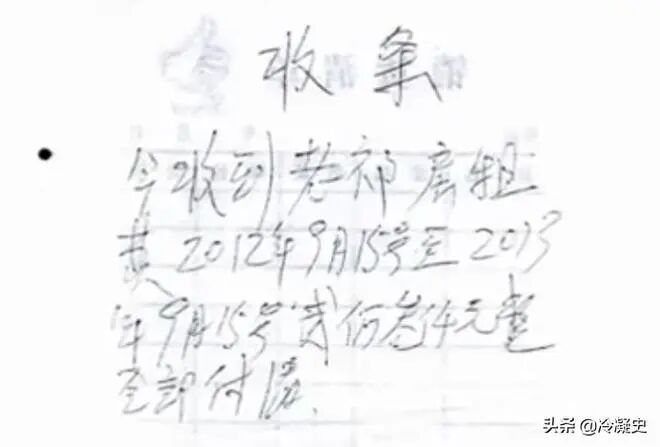 收条
今收到老神房租
费2012年9月15号至2013
年9月15号贰叁仟元整
全部付清.
头条 @冷凝史